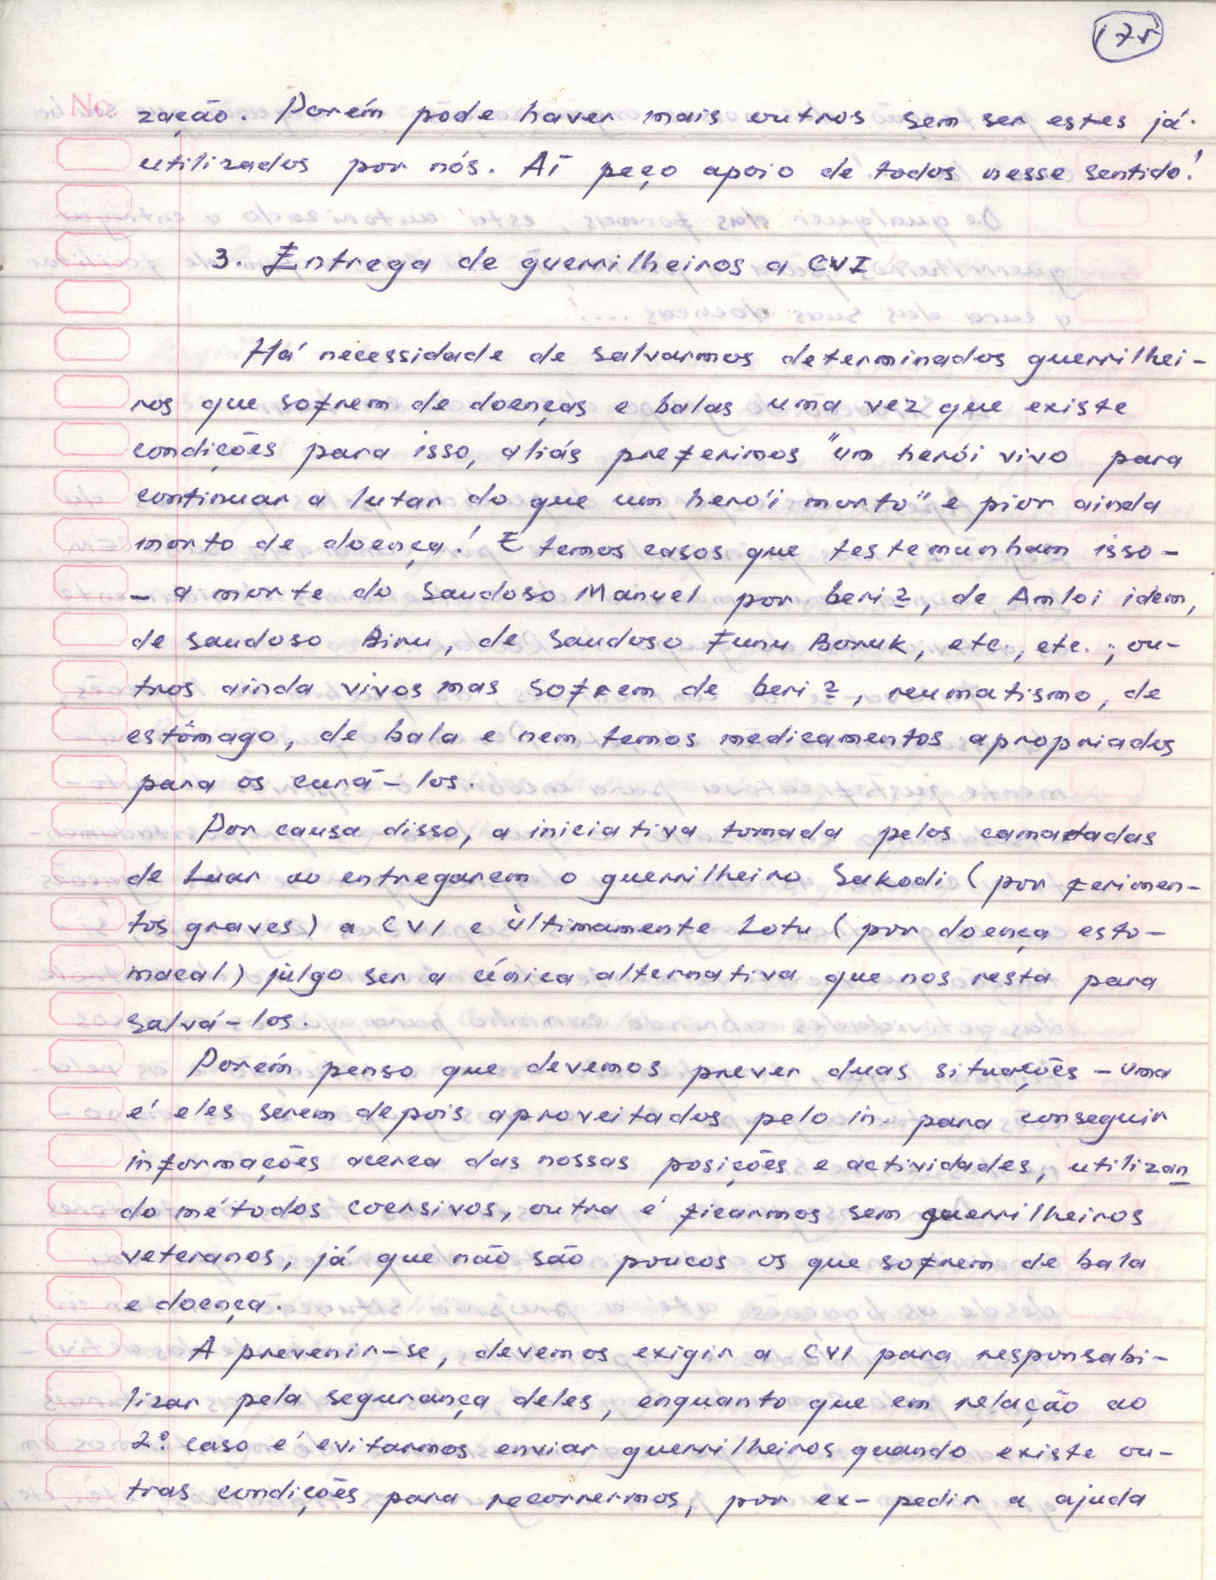 175
zação. Porém pode haver mais outros sem ser estes já
utilizados por nós. Aí peço apoio de todos nesse sentido!
3. Entrega de guerrilheiros a CVI
Há necessidade de salvarmos determinados guerrilhei-
ros que sofrem de doenças e balas uma vez que existe
condições para isso, aliás preferimos "um herói vivo para
continuar a lutar do que um herói morto" e pior ainda
morto de doença! E temos casos que testemunham isso -
- a morte do saudoso Manuel por beri2, de Amloi idem,
de saudoso Biru, de saudoso Funu Boruk, etc., etc.; ou-
tros ainda vivos mas sofrem de beri2, reumatismo, de
estômago, de bala e nem temos medicamentos apropriados
para os curá-los.
Por causa disso, a iniciativa tomada pelos camaradas
de Luar ao entregarem o guerrilheiro Sakodi (por ferimen-
tos graves) a CVI e últimamente Lotu (por doença esto-
macal) julgo ser a única alternativa que nos resta para
salvá-los.
Porém penso que devemos prever duas situações - uma
é eles serem depois aproveitados pelo in. para conseguir
informações acerca das nossas posições e actividades, utilizan
do métodos coersivos, outra é ficarmos sem guerrilheiros
veteranos, já que não são poucos os que sofrem de bala
e doença.
A prevenir-se, devemos exigir a CVI para responsabi-
lizar pela segurança deles, enquanto que em relação ao
2º caso é evitarmos enviar guerrilheiros quando existe ou-
tras condições para recorrermos, por ex- pedir a ajuda